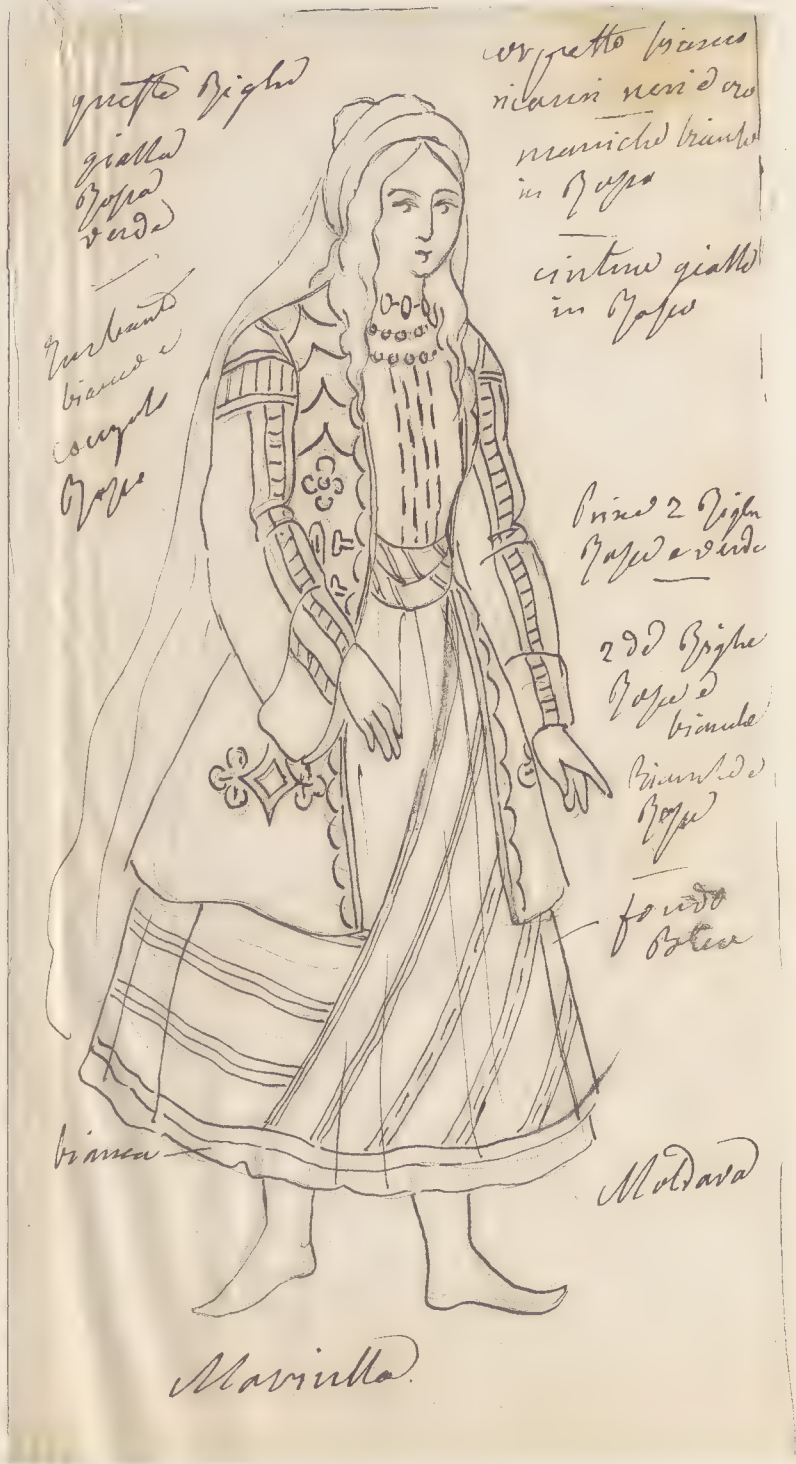 queste Righe
gialla
Rossa
verde
Turbante
bianco e
Rosso
corpetto bianco
ricami neri e oro
maniche bianche
in Rosso
cinture gialle
in Rosso
Prime 2 Righe
Rosse e verde
2 de Righe
Rosse e
bianche
Bianche e
Rosse
fondo
Bleu
bianca
Moldava
Marinella